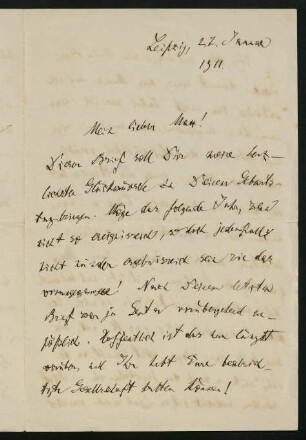 Leipzig, 27. Januar
1911.
Mein lieber Max!
Dieser Brief soll Dir meine herz-
lichsten Glückwünsche zu Deinem Geburts-
tag bringen. Möge das folgende Jahr, wenn
nicht so ereignisreich, so doch jedenfalls
nicht minder ergebnisreich sein wie das
vorangegangene! Nach Deinem letzten
Brief war ja vorübergehend un-
päßlich. Hoffentlich ist das nun längst
vorüber, und Ihr habt Eure beabsich-
tigte Gesellschaft halten können!